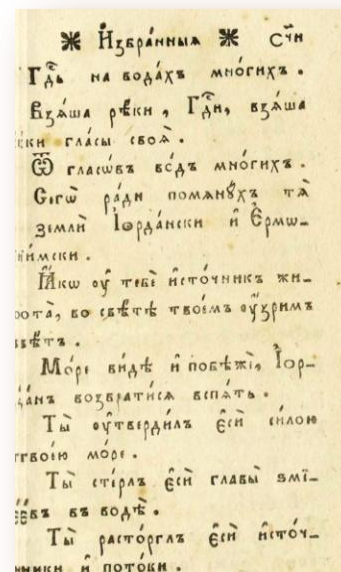 И҆збра̑нныѧ
Гдⷭ҇ь на вода́хъ мно́гихъ .
Взѧ́ша рѣ́ки , Гдⷭ҇и , взѧ́ша
гла́сы своѧ̀ .
Ѿ гласѡ́въ во́дъ мно́гихъ .
Сегѡ̀ ра́ди помѧнꙋ́хъ тѧ̀
землѝ І҆ѻрда́нски и҆ Є҆рмѡ-
ни́мски .
Ꙗ҆́кѡ ᲂу҆ тебє̀ и҆сто́чникъ жи-
вота̀ , во свѣ́тѣ твое́мъ ᲂу҆́зримъ
свѣ́тъ .
Мо́ре ви́дѣ и҆ побѣ́жѐ , І҆ор-
да́нъ возврати́сѧ вспѧ́ть .
Ты̀ ᲂу҆тверди́лъ є҆сѝ си́лою
твое́ю мо́ре .
Ты̀ сте́рлъ є҆сѝ главы̀ ѕмї-
є́въ въ водѣ̀ .
Ты̀ расто́рглъ є҆сѝ и҆сто́ч-
ники и҆ пото́ки .